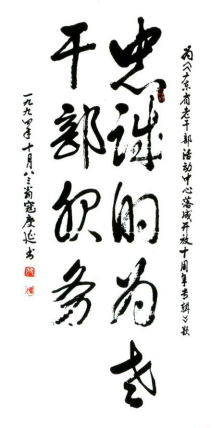 为《广东省老干部活动中心落成开放十周年专辑》题
忠诚的为老
干部服务
一九九四年十月八三翁寇庆延书